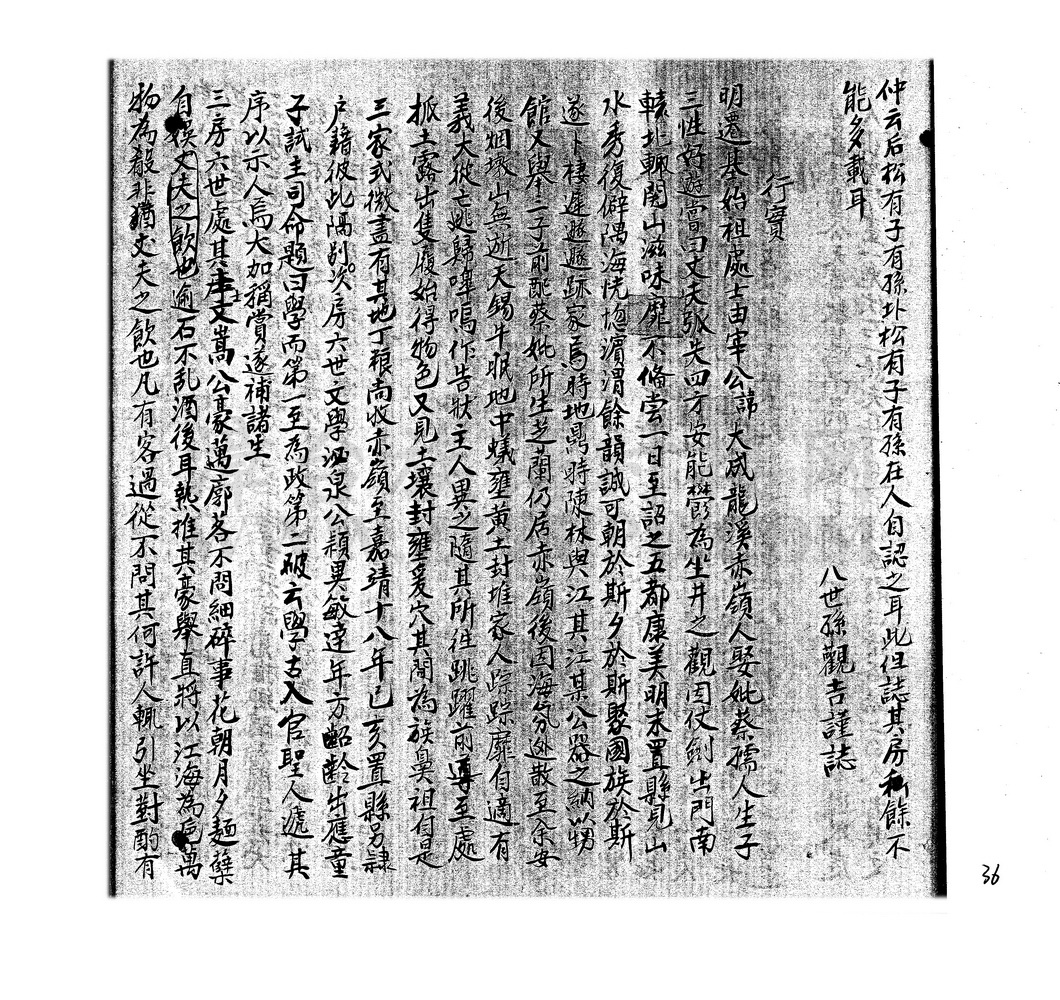 仲云后松有子有孫圤松有子有孫在人自認之耳此但誌其房私餘不
能多載耳
八世孫觀吉謹誌
行實
明遷基始祖處士由宰公諱大咸龍溪赤嶺人娶妣蔡孺人生子
三性好遊嘗曰丈夫張矢四方安能欝為坐井之觀因仗劍出門南
轅北輙関山滋味靡不俻嘗一日至詔之五都康美明末置縣見山
水秀復僻隅海湾濵渭餘韻誠可朝於斯夕於斯聚國族於斯
遂卜棲遲遯跡家焉時地鼎時陳林與江其江某公器之訥以甥
館又舉二子前配蔡妣所生芝蘭仍居赤嶺後因海氛迯散至余安
後烟墩山無逝天錫牛眠地中蟻壅黄土封堆家人踪踪靡自適有
義犬從亡逃歸嘷嗚作告狀主人異之隨其所往跳躍前導至處
抓土露出隻履始得物色又見土壤封壅爰穴其間為族鼻祖付是
三家式微盡有其地丁粮尚收赤嶺至嘉靖十八年己亥置縣另隷
户籍彼此隔別次房六世文學泗泉公穎異敏達年方齠齡出應童
子試主司命題曰學而第一至為政第二破云學古入官聖人遞其
序以示人焉大加稱賞遂補諸生
三房六世處其士文嵩公豪邁廓落不問細碎事花朝月夕麺孽
自娱丈夫之飲也逾石不乱酒後耳熱推其豪舉直將以江海為卮萬
物為殽非猶丈夫之飲也凡有客過從不問其何許人輙引坐對酌有
36